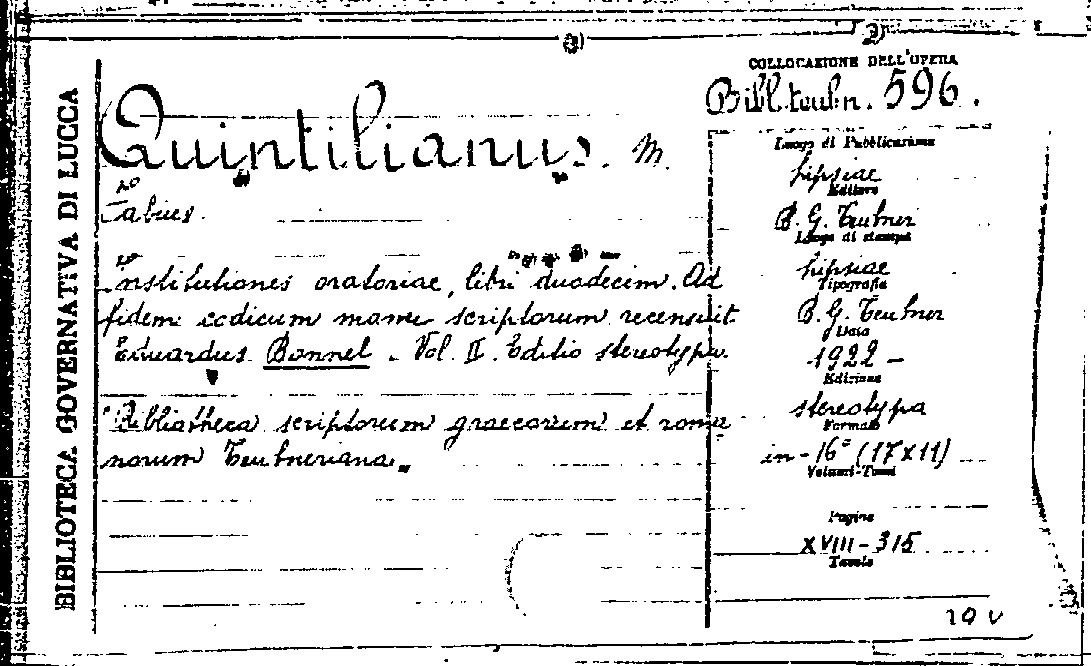 BIBLIOTECA GOVERNATIVA DI LUCCA
Quintilianus. M.
Fabius.
Institutiones oratoriae, libri duodecim. Ad
fidem codicum manu scriptorum recensuit
Eduardus Bonnel. Vol. II. Editio stereotypa.
"Bibliotheca scriptorum graecorum et roma
norum Teubneriana"
COLLOCAZIONE DELL'OPERA
Bibl. teubn. 596.
Luogo di Pubblicazione
Lipsiae
Editore
B. G. Teubner
Luogo di stampa
Lipsiae
Tipografia
B. G. Teubner
Data
1922 -
Edizione
stereotypa
Formato
in-16° (17x11)
Volumi-Tomi
Pagine
XVIII-315
Tavole